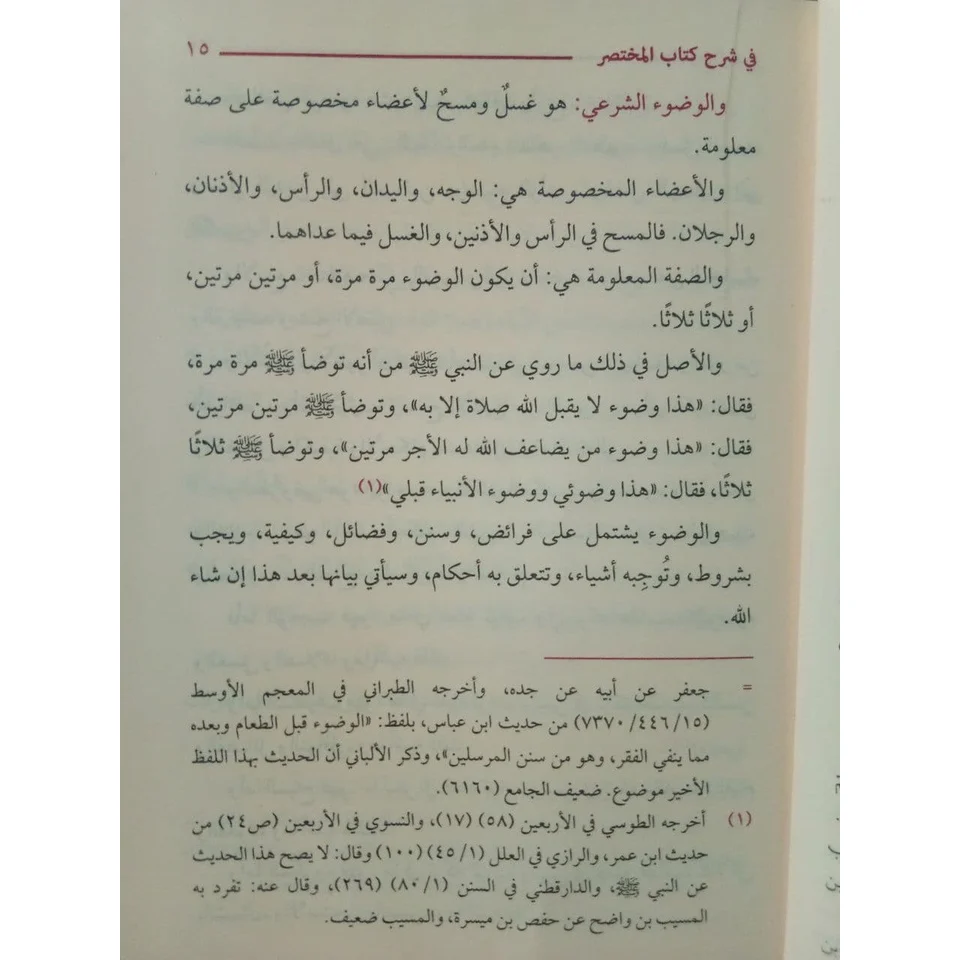 في شرح كتاب المختصر ١٥
والوضوء الشرعي: هو غسلٌ ومسحٌ لأعضاء مخصوصة على صفة
معلومة.
والأعضاء المخصوصة هي: الوجه، واليدان، والرأس، والأذنان،
والرجلان. فالمسح في الرأس والأذنين، والغسل فيما عداهما.
والصفة المعلومة هي: أن يكون الوضوء مرة مرة، أو مرتين مرتين،
أو ثلاثًا ثلاثًا.
والأصل في ذلك ما روي عن النبي ﷺ من أنه توضأ ﷺ مرة مرة،
فقال: «هذا وضوء لا يقبل الله صلاة إلا به»، وتوضأ ﷺ مرتين مرتين،
فقال: «هذا وضوء من يضاعف الله له الأجر مرتين»، وتوضأ ﷺ ثلاثًا
ثلاثًا، فقال: «هذا وضوئي ووضوء الأنبياء قبلي»(١)
والوضوء يشتمل على فرائض، وسنن، وفضائل، وكيفية، ويجب
بشروط، وتُوجِبه أشياء، وتتعلق به أحكام، وسيأتي بيانها بعد هذا إن شاء
الله.
= جعفر عن أبيه عن جده، وأخرجه الطبراني في المعجم الأوسط
(١٥/ ٤٤٦/ ٧٣٧٠) من حديث ابن عباس، بلفظ: «الوضوء قبل الطعام وبعده
مما ينفي الفقر، وهو من سنن المرسلين»، وذكر الألباني أن الحديث بهذا اللفظ
الأخير موضوع. ضعيف الجامع (٦١٦٠).
(١) أخرجه الطوسي في الأربعين (٥٨) (١٧)، والنسوي في الأربعين (ص٢٤) من
حديث ابن عمر، والرازي في العلل (١/ ٤٥) (١٠٠) وقال: لا يصح هذا الحديث
عن النبي ﷺ، والدارقطني في السنن (١/ ٨٠) (٢٦٩)، وقال عنه: تفرد به
المسيب بن واضح عن حفص بن ميسرة، والمسيب ضعيف.